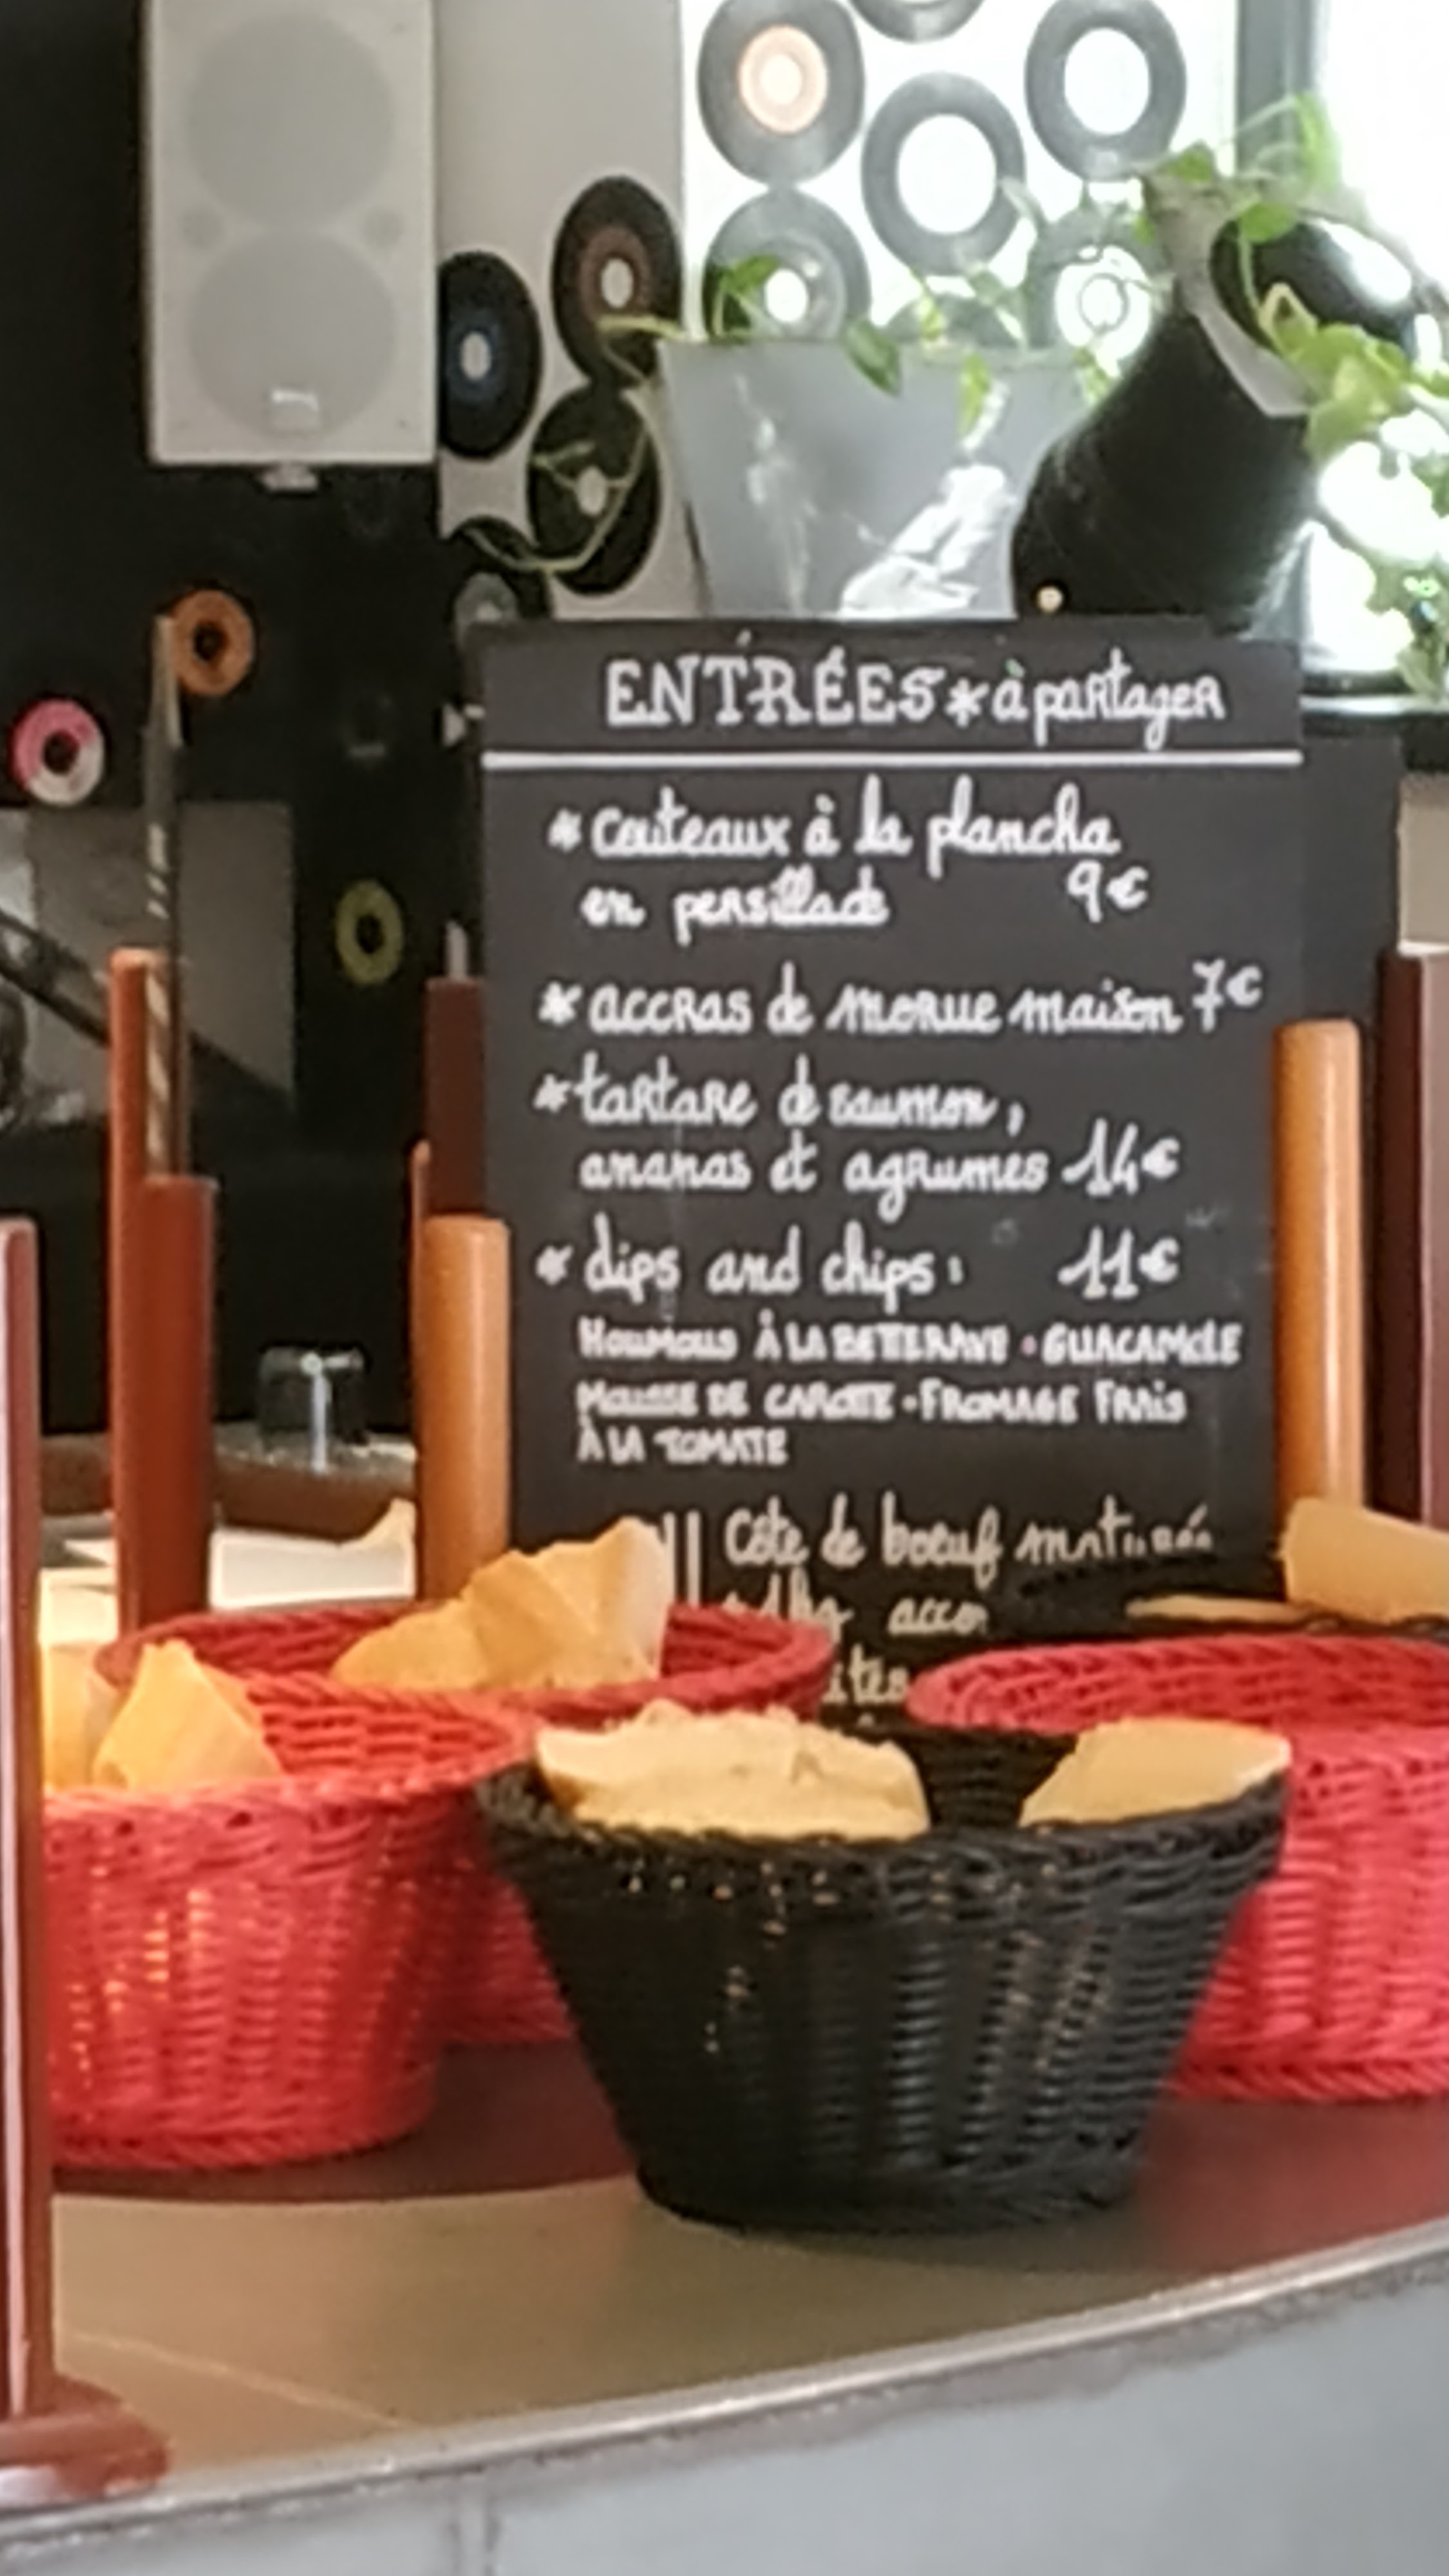 ENTRÉES * à partager
* couteaux à la plancha
en persillade 9€
* accras de morue maison 7€
* tartare de saumon,
ananas et agrumes 14€
* dips and chips : 11€
Houmous À LA BETTERAVE • GUACAMOLE
MOUSSE DE CAROTTE • FROMAGE FRAIS
À LA TOMATE
Côte de boeuf maturée